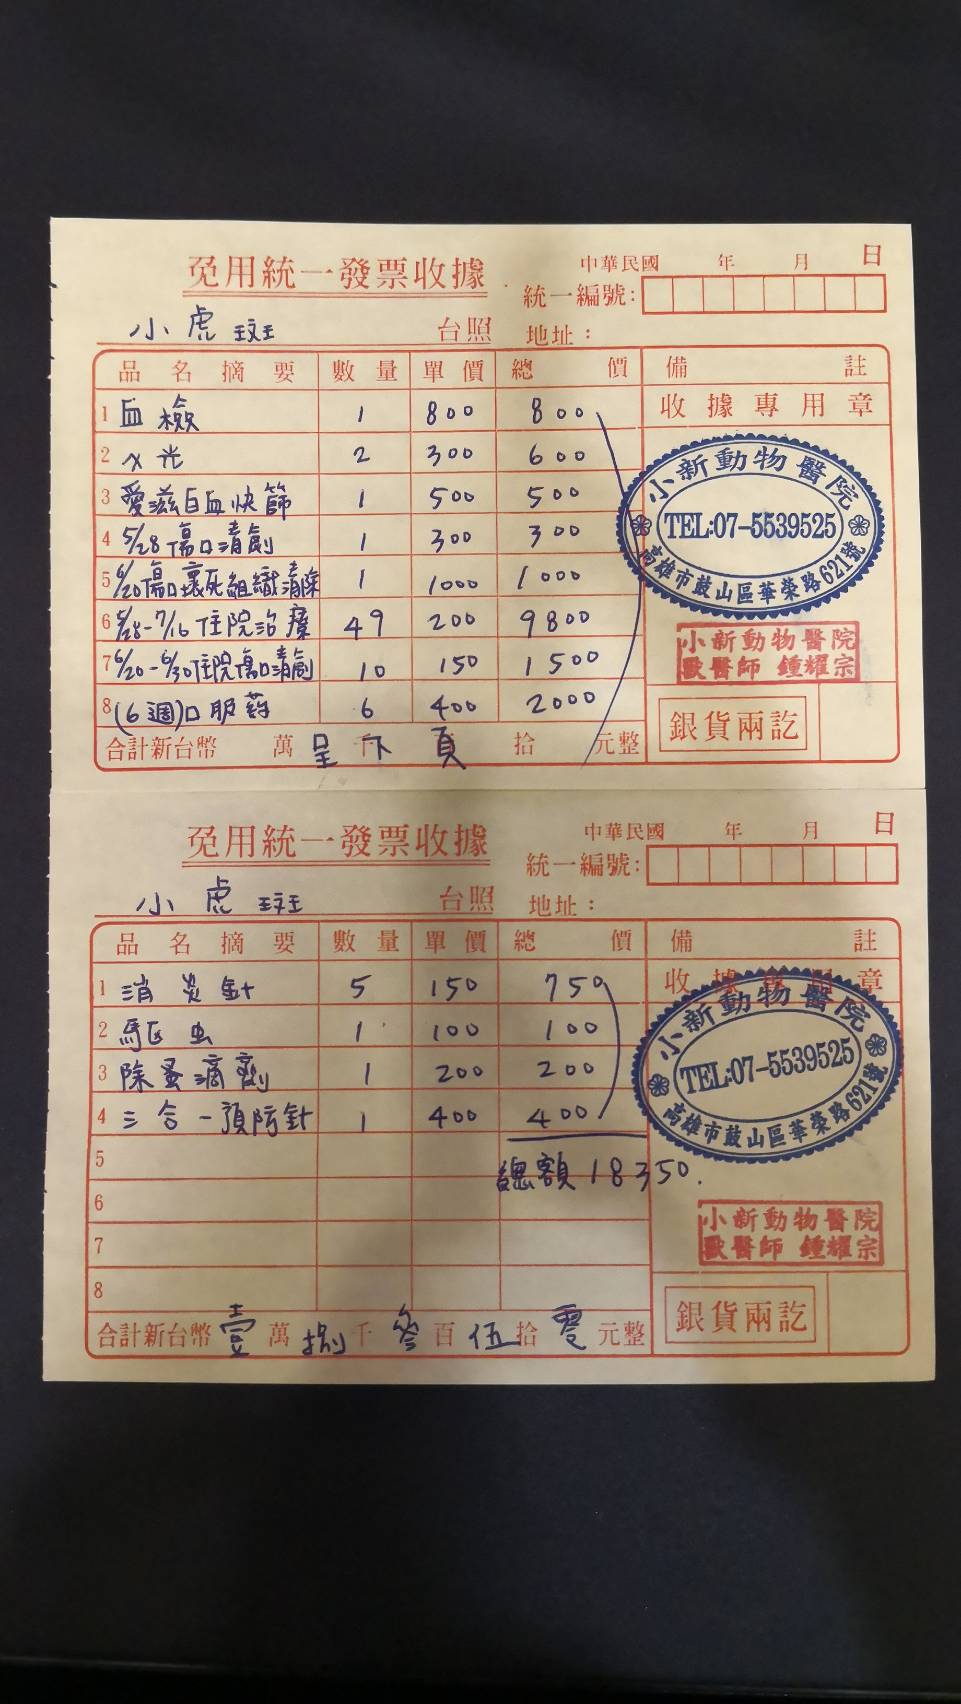 免用統一發票收據
中華民國 年 月 日
統一編號:
小虎斑 台照 地址:
品名摘要 數量 單價 總價 備註
1 血檢 1 800 800 收據專用章
2 X光 2 300 600
3 愛滋白血快篩 1 500 500
4 5/28傷口清創 1 300 300
5 6/20傷口壞死組織清除 1 1000 1000
6 5/28-7/16住院治療 49 200 9800
7 6/20-6/30住院傷口清創 10 150 1500
8 (6週)口服药 6 400 2000
小新動物醫院
TEL:07-5539525
高雄市鼓山區華榮路621號
小新動物醫院
獸醫師 鍾耀宗
銀貨兩訖
合計新台幣 萬 千 百 拾 元整
呈下頁
免用統一發票收據
中華民國 年 月 日
統一編號:
小虎斑 台照 地址:
品名摘要 數量 單價 總價 備註
1 消炎針 5 150 750 收據專用章
2 驅虫 1 100 100
3 除蚤滴劑 1 200 200
4 三合一預防針 1 400 400
5 總額18350.
6
7
8
小新動物醫院
TEL:07-5539525
高雄市鼓山區華榮路621號
小新動物醫院
獸醫師 鍾耀宗
銀貨兩訖
合計新台幣 壹萬捌千叁百伍拾零元整